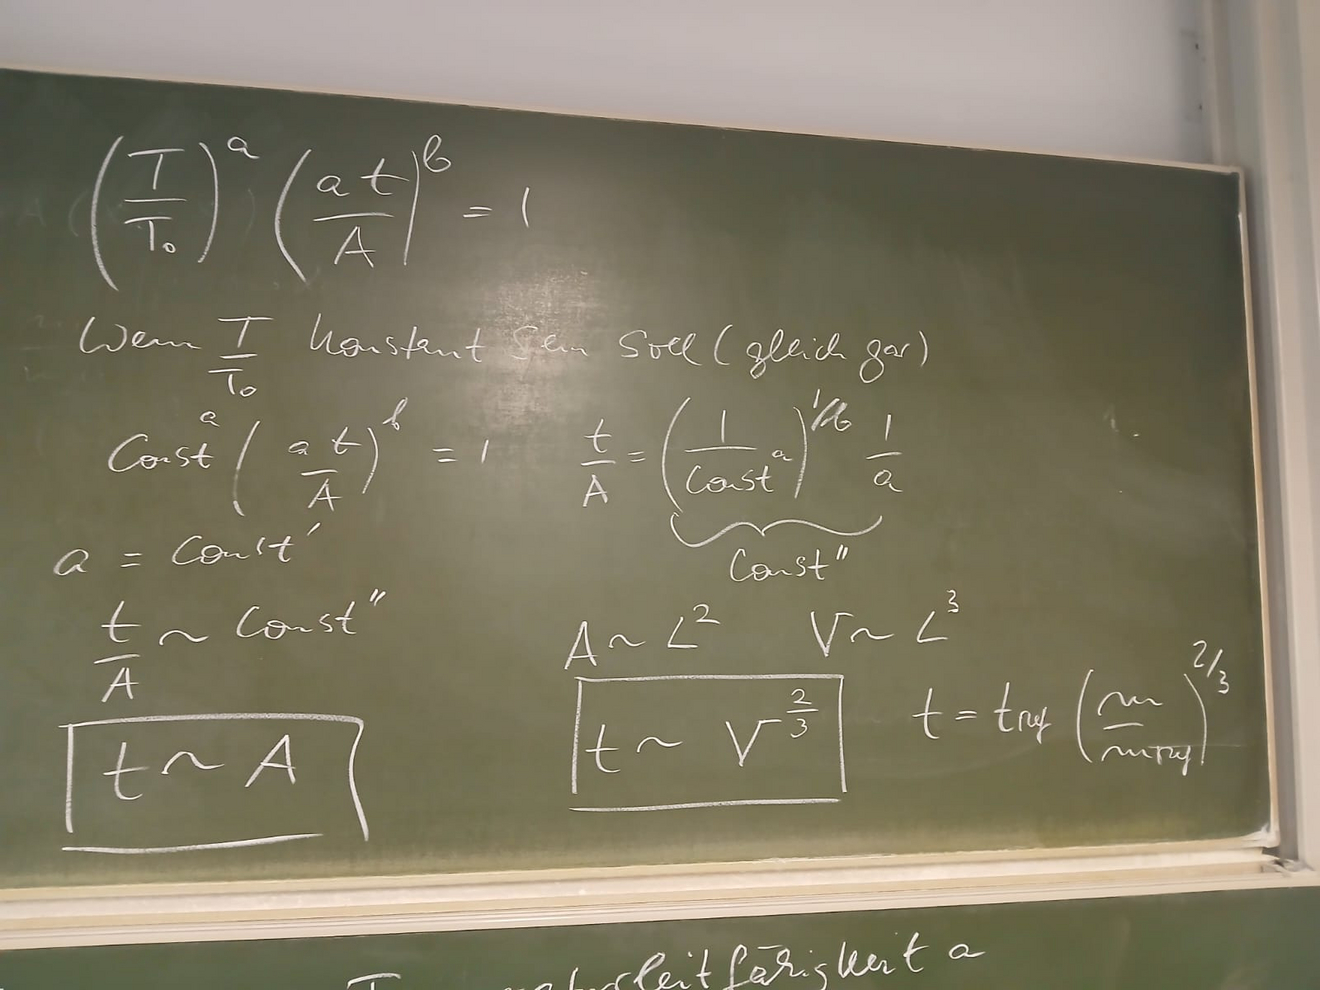 (T/T₀)ᵃ (a t/A)ᵇ = 1
Wenn T/T₀ konstant sein soll (gleich gar)
Constᵃ (a t/A)ᵇ = 1
t/A = (1/Constᵃ)^1/b 1/a
Const"
a = Const'
t/A ~ Const"
A ~ L² V ~ L³
t ~ A
t ~ V^2/3
t = t_ref (m/m_ref)^2/3
leitfähigkeit a